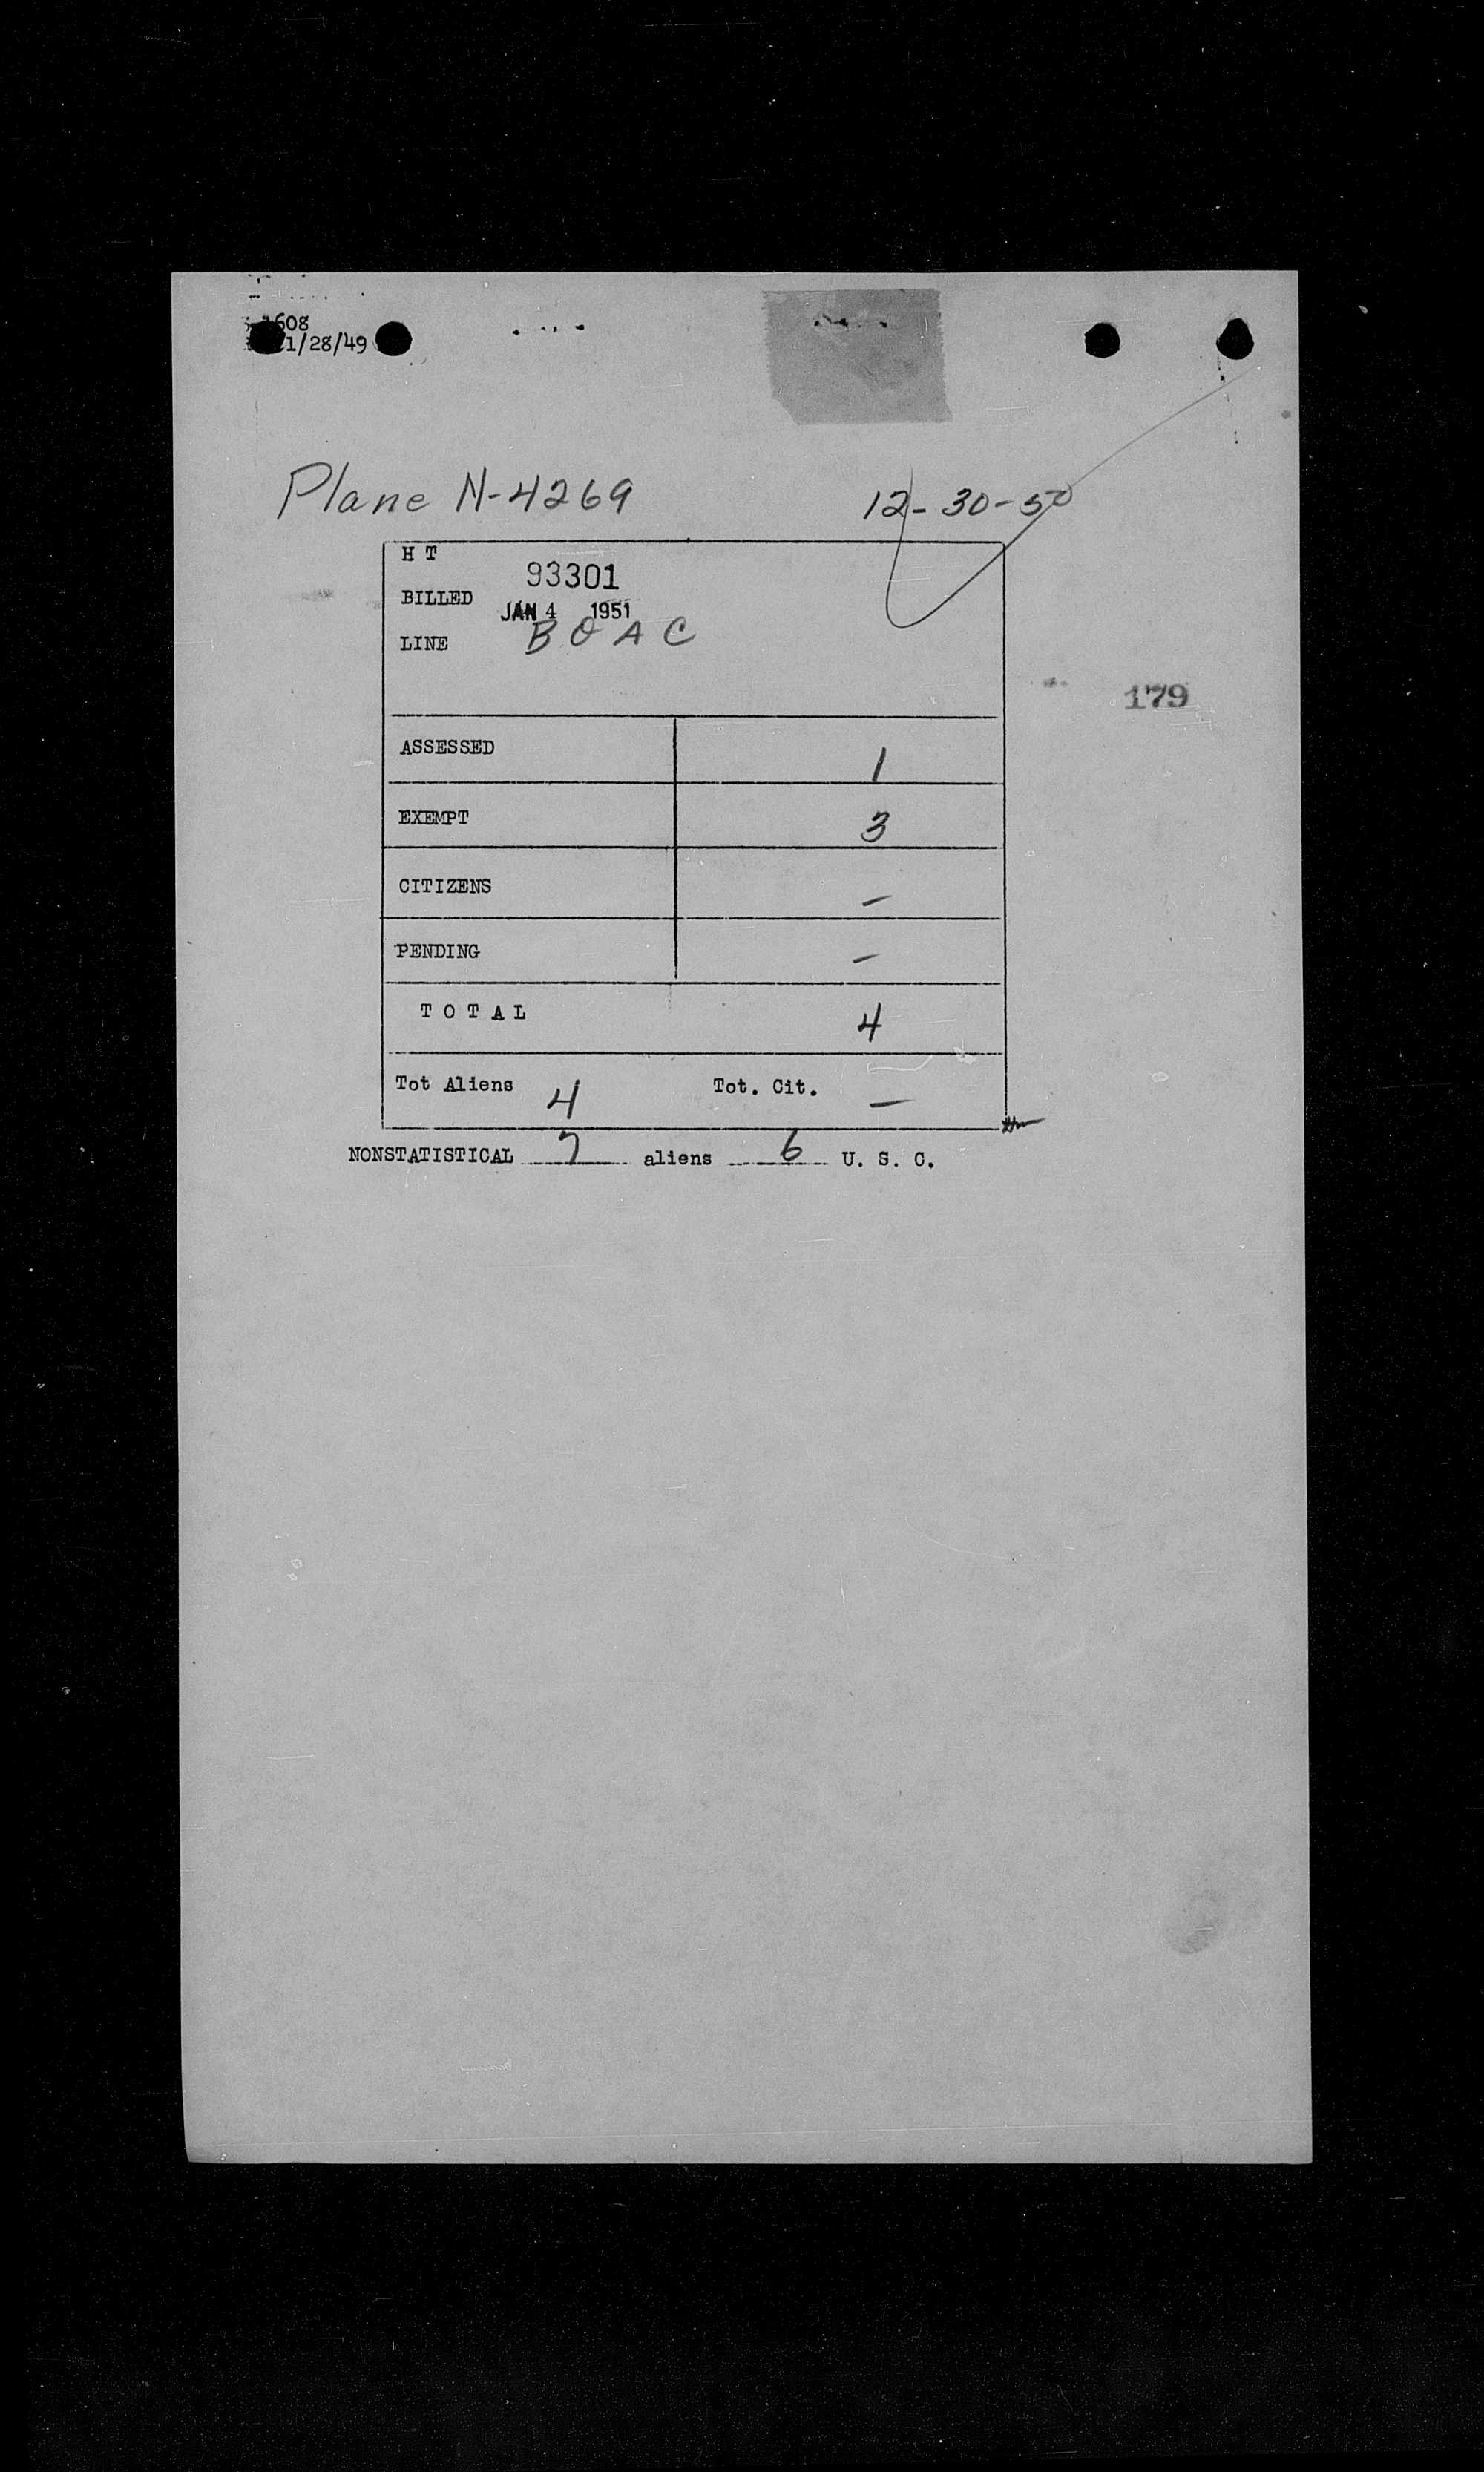 608
1/28/49
Plane N-4269 12-30-50
H T
93301
BILLED
JAN 4 1951
LINE B O A C
179
ASSESSED 1
EXEMPT 3
CITIZENS -
PENDING -
T O T A L 4
Tot Aliens 4 Tot. Cit. -
NONSTATISTICAL 7 aliens 6 U. S. C.